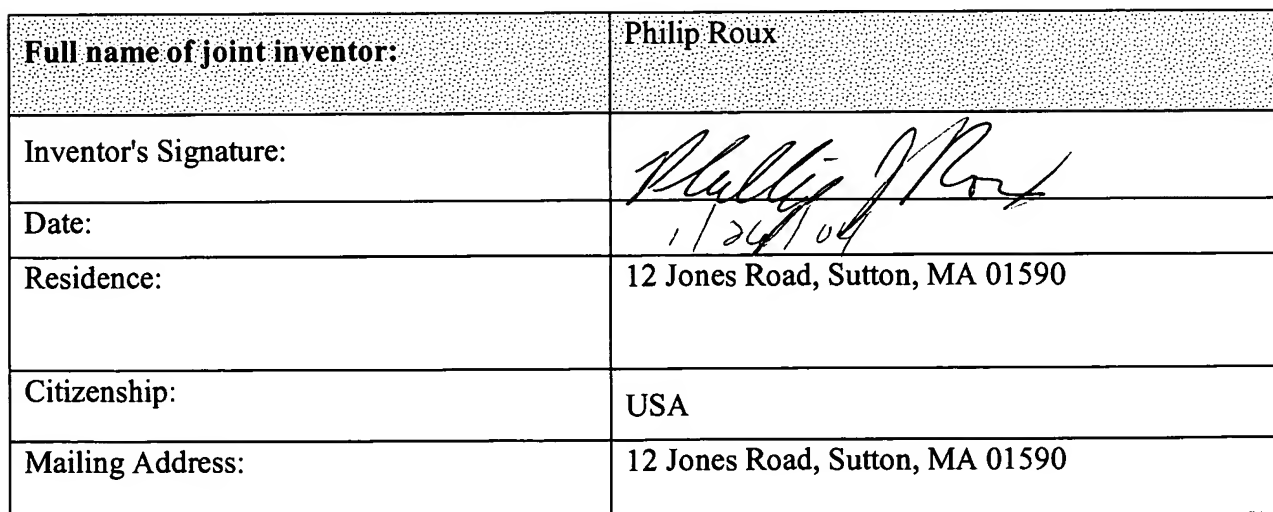 Full name of joint inventor: Philip Roux
Inventor's Signature: Phillip J Roux
Date: 1/26/04
Residence: 12 Jones Road, Sutton, MA 01590
Citizenship: USA
Mailing Address: 12 Jones Road, Sutton, MA 01590